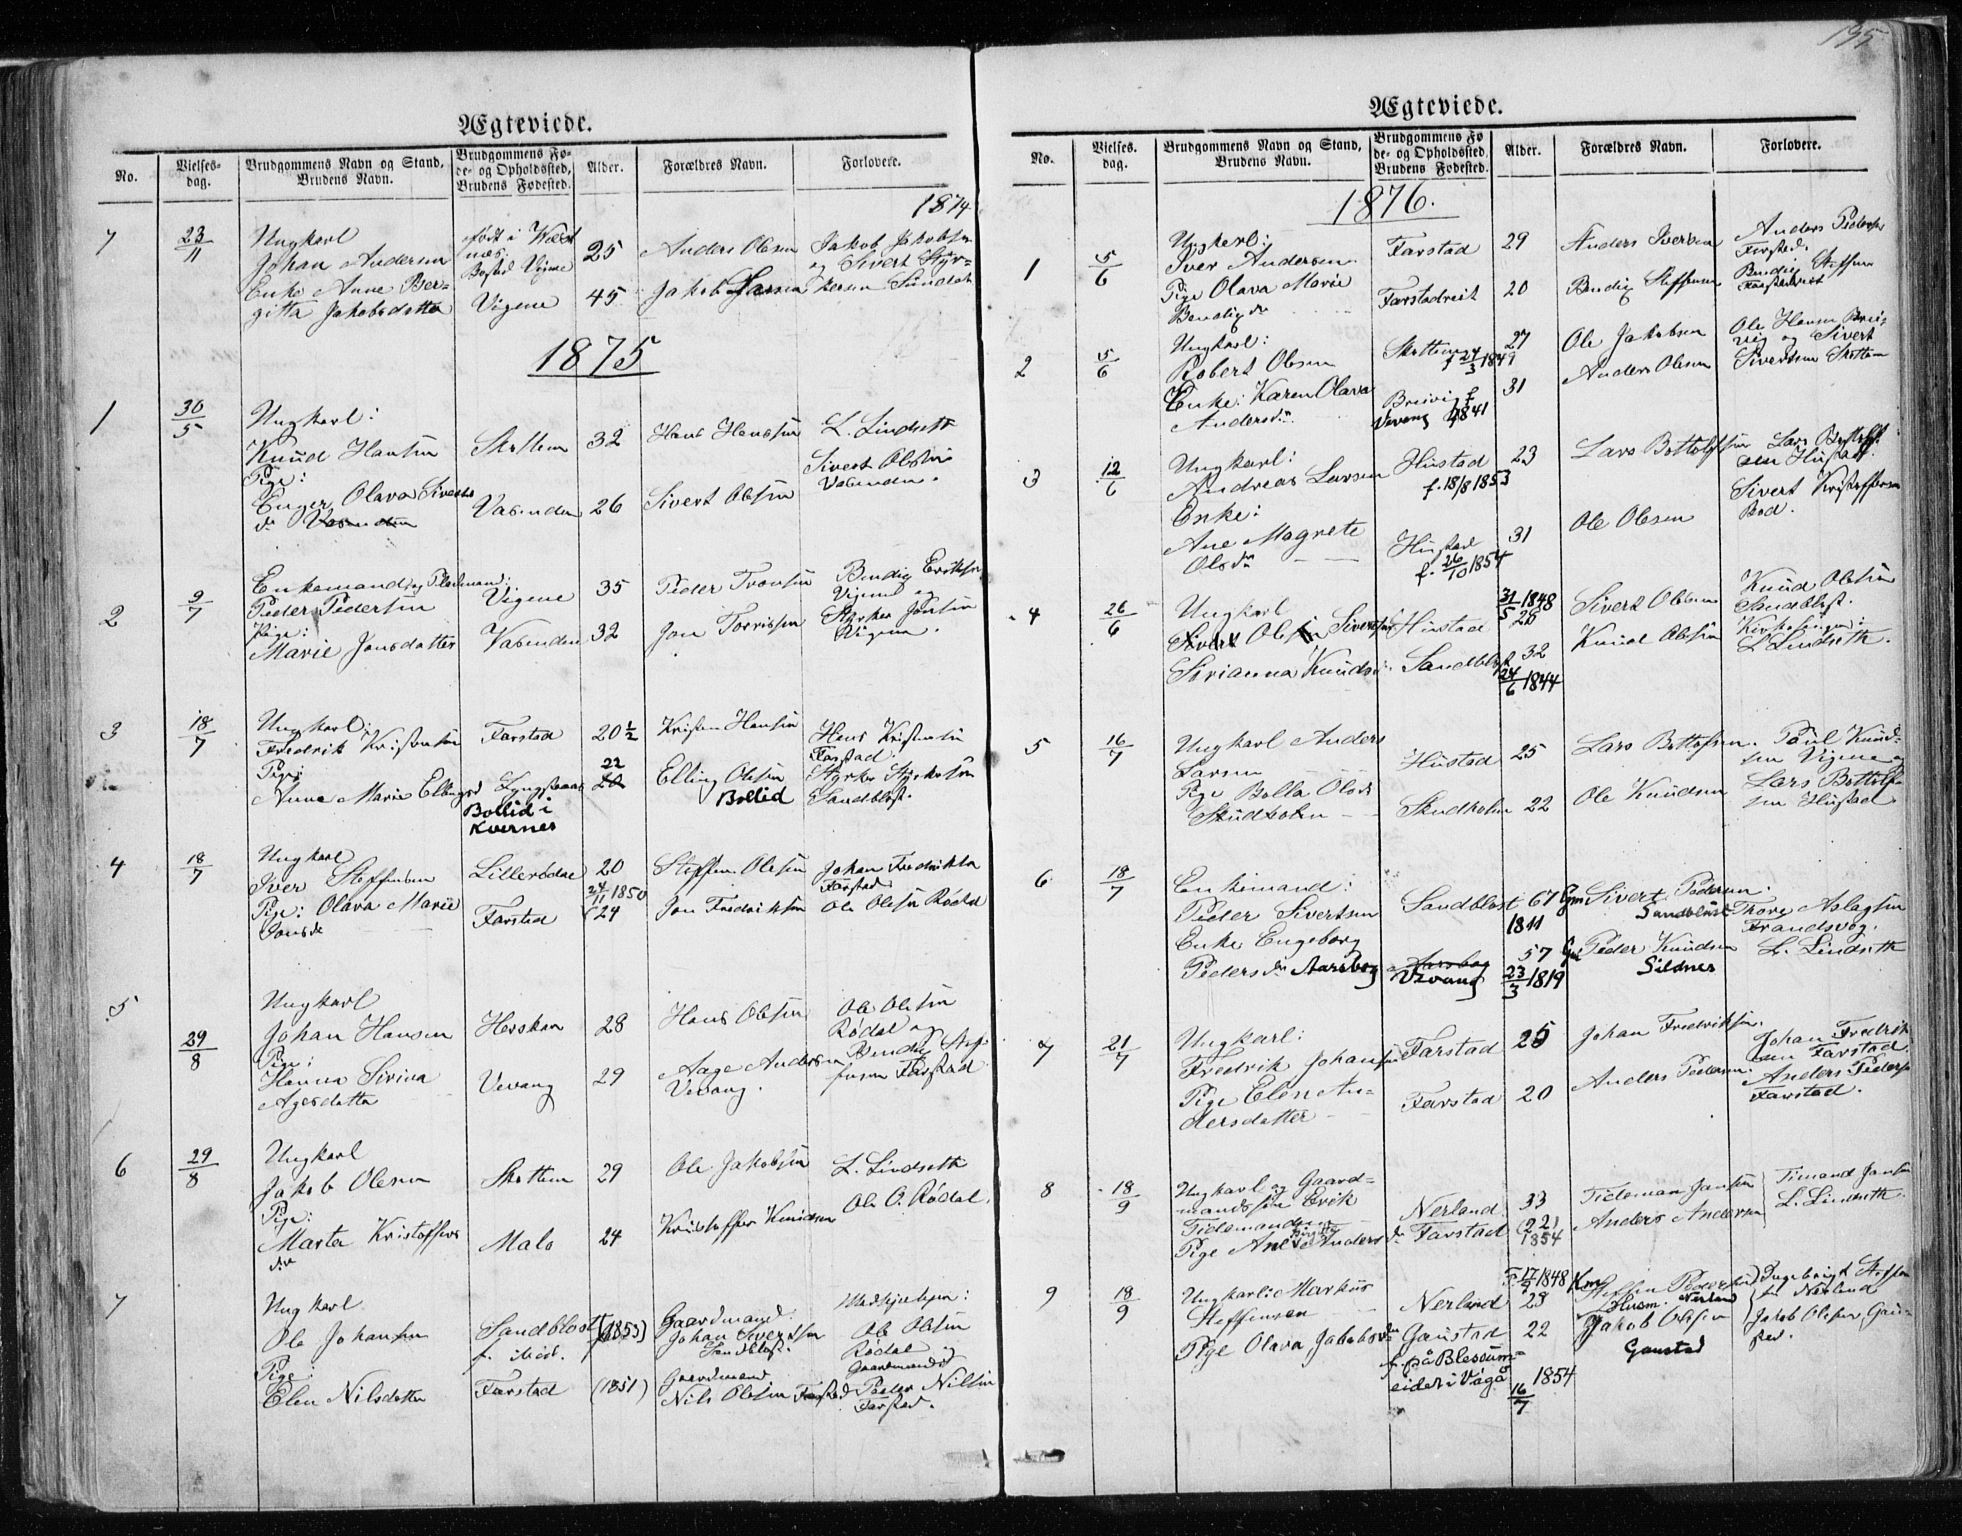 Ægteviede.
No.
Vielses-
dag.
Brudgommens Navn og Stand,
Brudens Navn.
Brudgommens Fø-
de- og Opholdssted,
Brudens Fødested.
Alder.
Forældres Navn.
Forlovere.
1874
7
23/11
Ungkarl
Johan Andersen
Enke Anne Ber-
gitta Jakobsdatter
født i
Bosted Vigene
Vigene
25
45
Anders Olesen
Jakob Larsen
Jakob Jakobsen
og Sivert Styr-
kersen
1875
1
30/5
Ungkarl:
Knud Hansen
Pige:
Olava Siverts
dr
Skottem
Vasenden
32
26
Hans Hansen
Sivert Olsen
L. Lindseth
Sivert Olsen
Vasenden.
2
9/7
Enkemand og
Peder Pedersen
Pige:
Marie Jonsdatter
Vigene
Vasenden
35
32
Peder Tronsen
Jon Torrissen
Bendig Eriksen
Vigene og
Styrker Jonsen
Vigene.
3
18/7
Ungkarl:
Fredrik Kristensen
Pige:
Anne Marie Ellingsd
Farstad
Bollid i
Kvernes
20 1/2
22
20
Kristen Hansen
Elling Olesen
Bollid
Hans Kristensen
Farstad.
Styrker Styrkersen
Sandblost.
4
18/7
Ungkarl
Iver Steffensen
Pige: Olava Marie
Jonsdr
Lillerødal
Farstad
20
24/11 1850
24
Steffen Olesen
Jon Fredriksen
Johan Fredriksen
Farstad
Ole Olsen Rødal
5
29/8
Ungkarl
Johan Hansen
Pige:
Hanna Sirina
Agesdatter
Herskan
Vevang
28
29
Hans Olsen
Aage Andersen
Vevang.
Ole Olsen
Rødal og
Bendig Stef-
fensen Farstad
6
29/8
Ungkarl
Jakob Olesen
Pige:
Marta Kristoffers
dr
Skottem
Malo
29
24
Ole Jakobsen
Kristoffer Knudsen
L. Lindseth
Ole O. Rødal.
7
Ungkarl
Ole Johansen
Pige:
Elen Nilsdatter
Sandblost
Farstad
(1853)
(1851)
Gaardmand
Johan Sivertsen
Sandblost.
Gaardmand
Nils Olsen Farstad
Ole Olsen
Rødal
Gaardmand
Peder Nilsen
Farstad.
195
Ægteviede.
No.
Vielses-
dag.
Brudgommens Navn og Stand,
Brudens Navn.
Brudgommens Fø-
de- og Opholdssted,
Brudens Fødested.
Alder.
Forældres Navn.
Forlovere.
1876.
1
5/6
Ungkarl:
Iver Andersen
Pige Olava Marie
Bendigdr
Farstad
Farstadreit
29
20
Anders Iversen
Bendig Steffensen
Anders Pedersen
Farstad.
Bendig Steffensen
Farstadreit
2
5/6
Ungkarl:
Robert Olsen
Enke: Karen Olava
Andersdr
Skottem
f 24/3 1849
Breivig f.
Vevang 1841
27
31
Ole Jakobsen
Anders Olesen
Ole Hansen Brei-
vig og Sivert
Sivertsen Skottem
3
12/6
Ungkarl:
Andreas Larsen
Enke:
Ane Magrete
Olsdr
Hustad
f. 18/8 1853
Hustad
f. 26/10 1854
23
31
Lars Bottolfsen
Ole Olesen
Lars Bottolf-
sen Hustad.
Sivert Kristoffersen
Bod.
4
26/6
Ungkarl
Sivertsen
Serianna Knudsdr
Hustad
Sandblost
31/5 1848
28
32
24/6 1844
Sivert Olsen
Knud Olesen
Knud Olesen
Sandblost.
Kirkesanger:
L. Lindseth.
5
16/7
Ungkarl Anders
Larsen
Pige Bolla Olsdr
Skudholm
Hustad
Skudholm
25
22
Lars Bottolfsen.
Ole Knudsen
Poul Knud-
sen Vigene og
Lars Bottolf-
sen Hustad
6
18/7
Enkemand:
Peder Sivertsen
Enke Engeborg
Pedersdr Aarsbog
Sandblost
Aarsbog
Vevang
67
1811
57
23/3 1819
Gm Sivert Pedersen.
Sandblost
Gm Peder Knudsen
Sildnes
Thore Aslagsen
Frandsvog.
L. Lindseth
7
21/7
Ungkarl:
Fredrik Johansen
Pige Elen An-
dersdatter
Farstad
Farstad
25
20
Johan Fredriksen.
Anders Pedersen.
Johan Fredrik-
sen Farstad.
Anders Pedersen
Farstad.
8
18/9
Ungkarl og Gaard-
mandssøn Erik
Tidemandsen
Pige Ane Andersdr
Nerland
Farstad
33
(22)
1854
Tideman Jansen
Anders Andersen
Timand Jansen
L. Lindseth.
9
18/9
Ungkarl: Markus
Steffensen
Pige Olava Jakobsdr
Nerland
Gaustad
f. på Blesum-
eidet i Vågå
1848
28
22
16/7 1854
Steffen Pedersen
Husm. Nerland
Jakob Olsen
Gaustad
Ingebrigt Steffen-
sen Nerland
Jakob Olsen Gau-
stad.